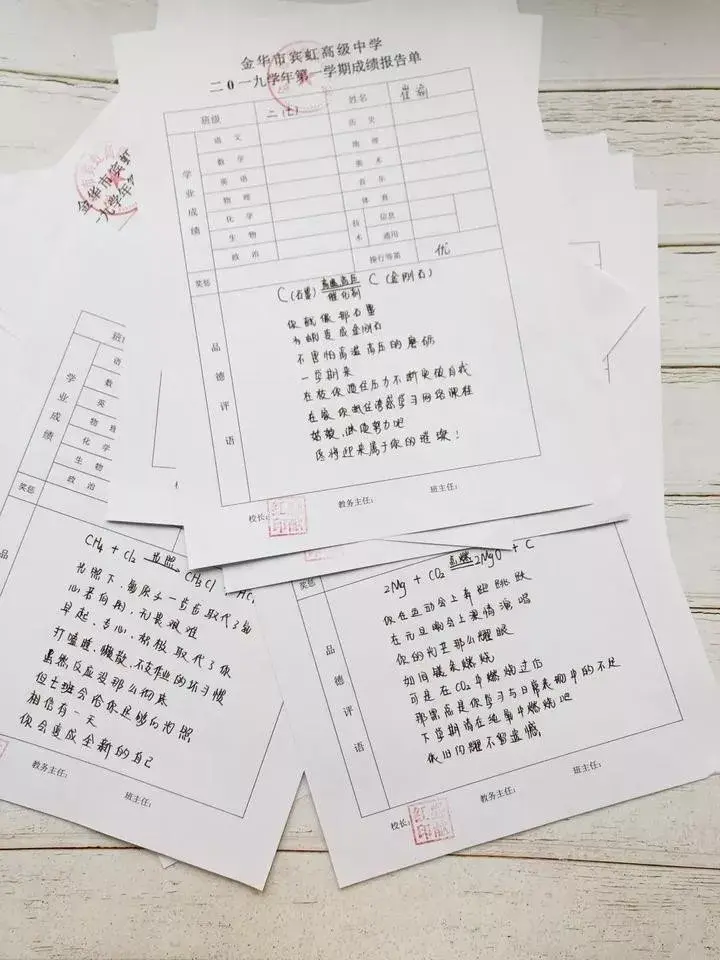 金华市宾虹高级中学
二0一九学年第一学期成绩报告单
班级 二(七) 姓名 崔瑜
学业成绩
语文 历史
数学 地理
英语 美术
物理 音乐
化学 体育
生物 技术 信息
政治 通用
操行等第 优
奖惩
品德评语
C(石墨) 高温高压 催化剂 C(金刚石)
你就像那石墨
为锻造成金刚石
不害怕高温高压的磨砺
一学期来
在校你顶住压力不断突破自我
在家你
学习网络课程
继续努力地
终将迎来属于你的璀璨!
校长: 教务主任: 班主任:
金华市宾虹
一九学年
学业成绩
语
数
英
物理
化学
生物
政治
奖惩
品
CH4 + Cl2 光照 CH3Cl
光照下,氯原子一步步取代了氢
心若向阳,无畏艰难
早起、专心、积极取代了你
打瞌睡、懒散、不交作业的坏习惯
虽然反应没那么彻底
但七班会给你足够的光照
相信有一天
你会变成全新的自己
教务主任: 班主任:
品德评语
2Mg + CO2 点燃 2MgO + C
你在运动会上奔跑跳跃
在元旦晚会上激情演唱
你的光芒那么耀眼
如同镁条燃烧
可是在CO2中燃烧过后
那黑点是你学习与日常表现中的不足
下学期请在纯氧中燃烧吧
依旧闪耀不留遗憾
校长: 教务主任: 班主任: